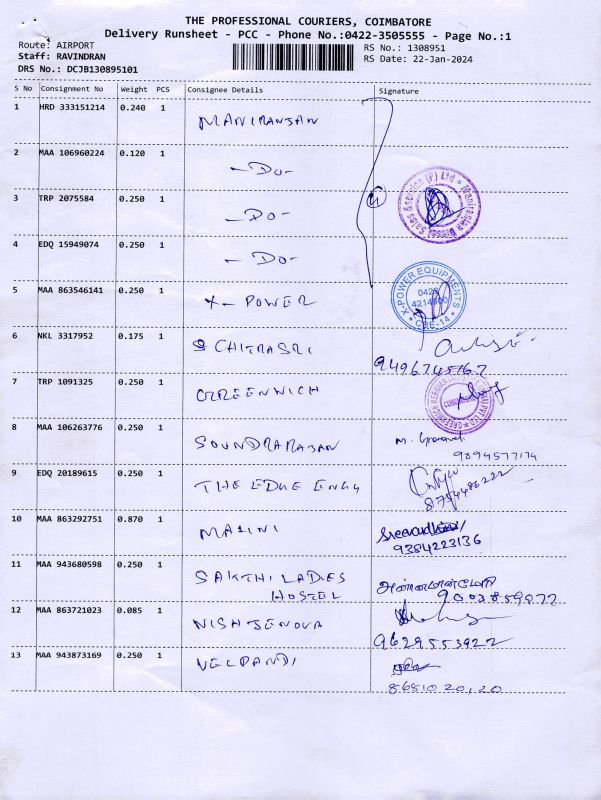 THE PROFESSIONAL COURIERS, COIMBATORE
Delivery Runsheet - PCC - Phone No.:0422-3505555 - Page No.:1
Route: AIRPORT
RS No.: 1308951
Staff: RAVINDRAN
RS Date: 22-Jan-2024
DRS No.: DCJB130895101
S No Consignment No Weight PCS Consignee Details Signature
1 HRD 333151214 0.240 1 MANIRANJAN
2 MAA 106960224 0.120 1 -DO-
3 TRP 2075584 0.250 1 -DO-
4 EDQ 15949074 0.250 1 -DO-
5 MAA 863546141 0.250 1 X-POWER
X-POWER EQUIPMENTS
0422
CBE-14
6 NKL 3317952 0.175 1 CHITRASRI
9496745167
7 TRP 1091325 0.250 1 GREENWICH
8 MAA 106263776 0.250 1 SOUNDRARAJAN
9894577174
9 EDQ 20189615 0.250 1 THE EDGE ENGG
8754486222
10 MAA 863292751 0.870 1 MALINI
9384223136
11 MAA 943680598 0.250 1 SAKTHI LADIES
HOSTEL
9003859072
12 MAA 863721023 0.085 1 NISH JENOVA
9629553922
13 MAA 943873169 0.250 1 VELPANDI
8681020120